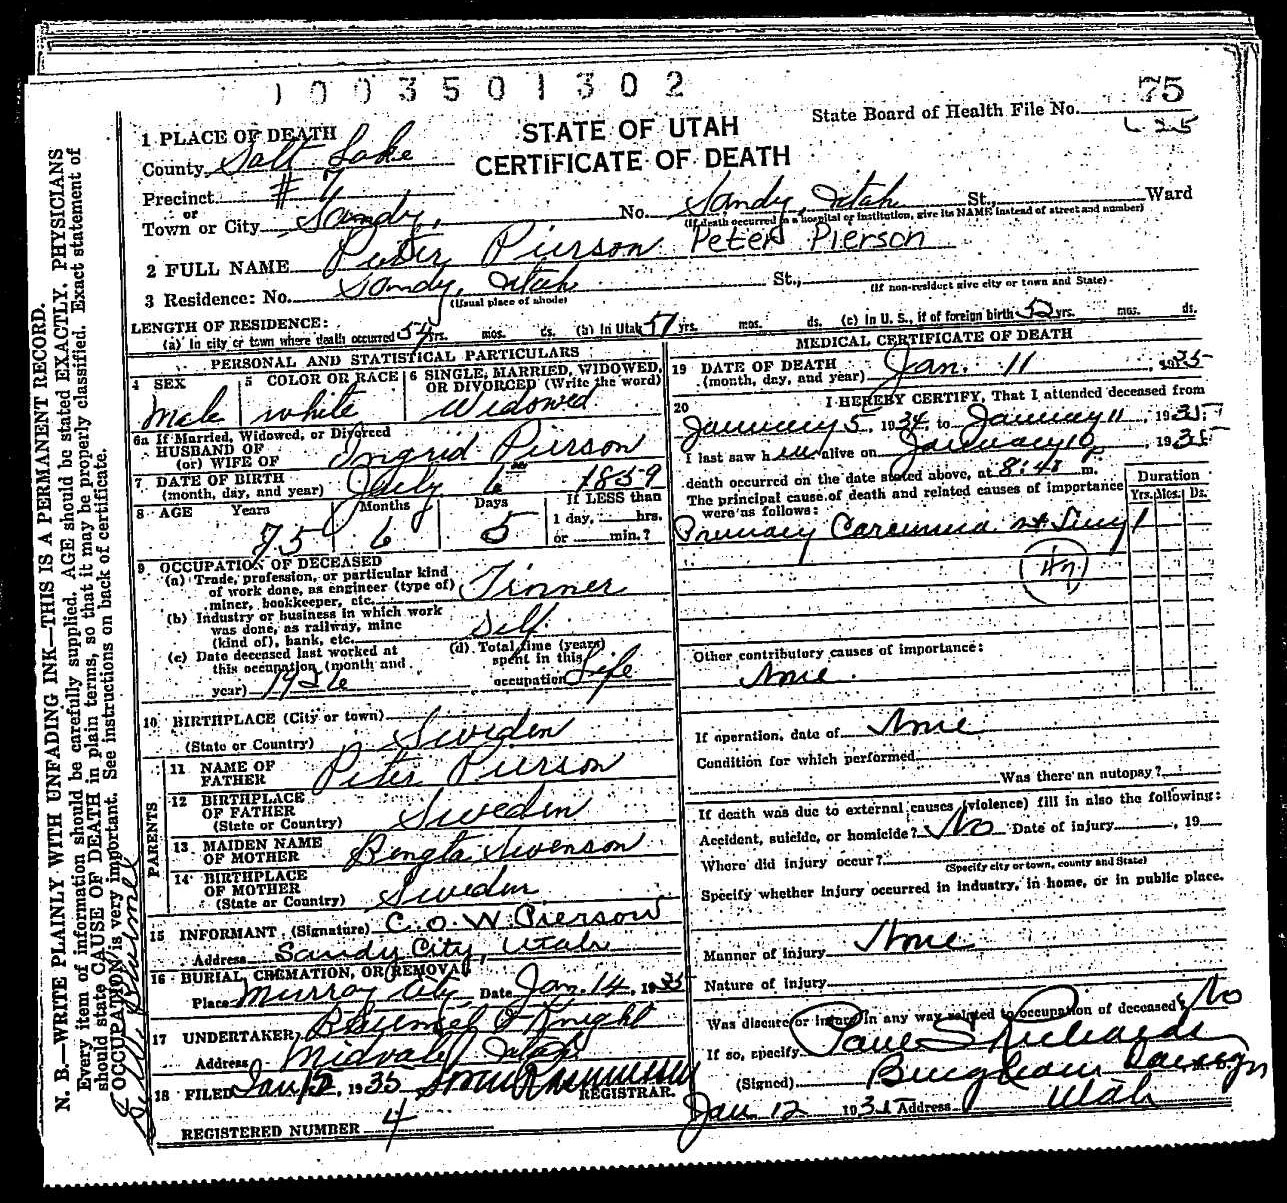 1003501302
75
State Board of Health File No.
STATE OF UTAH
CERTIFICATE OF DEATH
1 PLACE OF DEATH
County Salt Lake
Precinct # 7
or
Town or City Sandy, No. Sandy, Utah St., Ward
(If death occurred in a hospital or institution, give its NAME instead of street and number)
2 FULL NAME Peter Pierson Peter Pierson
3 Residence: No. Sandy, Utah St.,
(Usual place of abode) (If non-resident give city or town and State)
LENGTH OF RESIDENCE:
(a) In city or town where death occurred yrs. mos. ds. (b) In Utah 51 yrs. mos. ds. (c) In U. S., if of foreign birth 52 yrs. mos. ds.
PERSONAL AND STATISTICAL PARTICULARS
4 SEX Male
5 COLOR OR RACE white
6 SINGLE, MARRIED, WIDOWED, OR DIVORCED (Write the word) Widowed
6a If Married, Widowed, or Divorced
HUSBAND OF
(or) WIFE OF Ingrid Pierson
7 DATE OF BIRTH
(month, day, and year) July 6 1859
8 AGE Years 75 Months 6 Days 5
If LESS than
1 day, hrs.
or min.?
9 OCCUPATION OF DECEASED
(a) Trade, profession, or particular kind
of work done, as engineer (type of)
miner, bookkeeper, etc. Tinner
(b) Industry or business in which work
was done, as railway, mine
(kind of), bank, etc. Self
(c) Date deceased last worked at
this occupation (month and
year) 1926
(d) Total time (years)
spent in this
occupation Life
10 BIRTHPLACE (City or town)
(State or Country) Sweden
PARENTS
11 NAME OF
FATHER Peter Pierson
12 BIRTHPLACE
OF FATHER
(State or Country) Sweden
13 MAIDEN NAME
OF MOTHER Bengta Swenson
14 BIRTHPLACE
OF MOTHER
(State or Country) Sweden
15 INFORMANT (Signature) C. O. W. Pierson
Address Sandy City, Utah
16 BURIAL, CREMATION, OR REMOVAL
Place Murray City Date Jan. 14, 1935
17 UNDERTAKER & Knight
Address Midvale, Utah
18 FILED Jan 12, 1935
REGISTRAR.
REGISTERED NUMBER 4
MEDICAL CERTIFICATE OF DEATH
19 DATE OF DEATH
(month, day, and year) Jan. 11, 1935
20 I HEREBY CERTIFY, That I attended deceased from
January 5, 1934, to January 11, 1935
I last saw h im alive on January 10, 1935
death occurred on the date stated above, at 8:40 m.
The principal cause of death and related causes of importance
were as follows:
Duration
Yrs. Mos. Ds.
Primary Carcinoma of Lung 1
47
Other contributory causes of importance:
None
If operation, date of None
Condition for which performed
Was there an autopsy?
If death was due to external causes (violence) fill in also the following:
Accident, suicide, or homicide? No Date of injury , 19
Where did injury occur?
(Specify city or town, county and State)
Specify whether injury occurred in industry, in home, or in public place.
Manner of injury None
Nature of injury
Was disease or injury in any way related to occupation of deceased? No
If so, specify
(Signed) Paul S Richards
M. D.
Jan 12 1935 Address Bingham Canyon
Utah
N. B.—WRITE PLAINLY WITH UNFADING INK—THIS IS A PERMANENT RECORD.
Every item of information should be carefully supplied. AGE should be stated EXACTLY. PHYSICIANS
should state CAUSE OF DEATH in plain terms, so that it may be properly classified. Exact statement of
OCCUPATION is very important. See instructions on back of certificate.